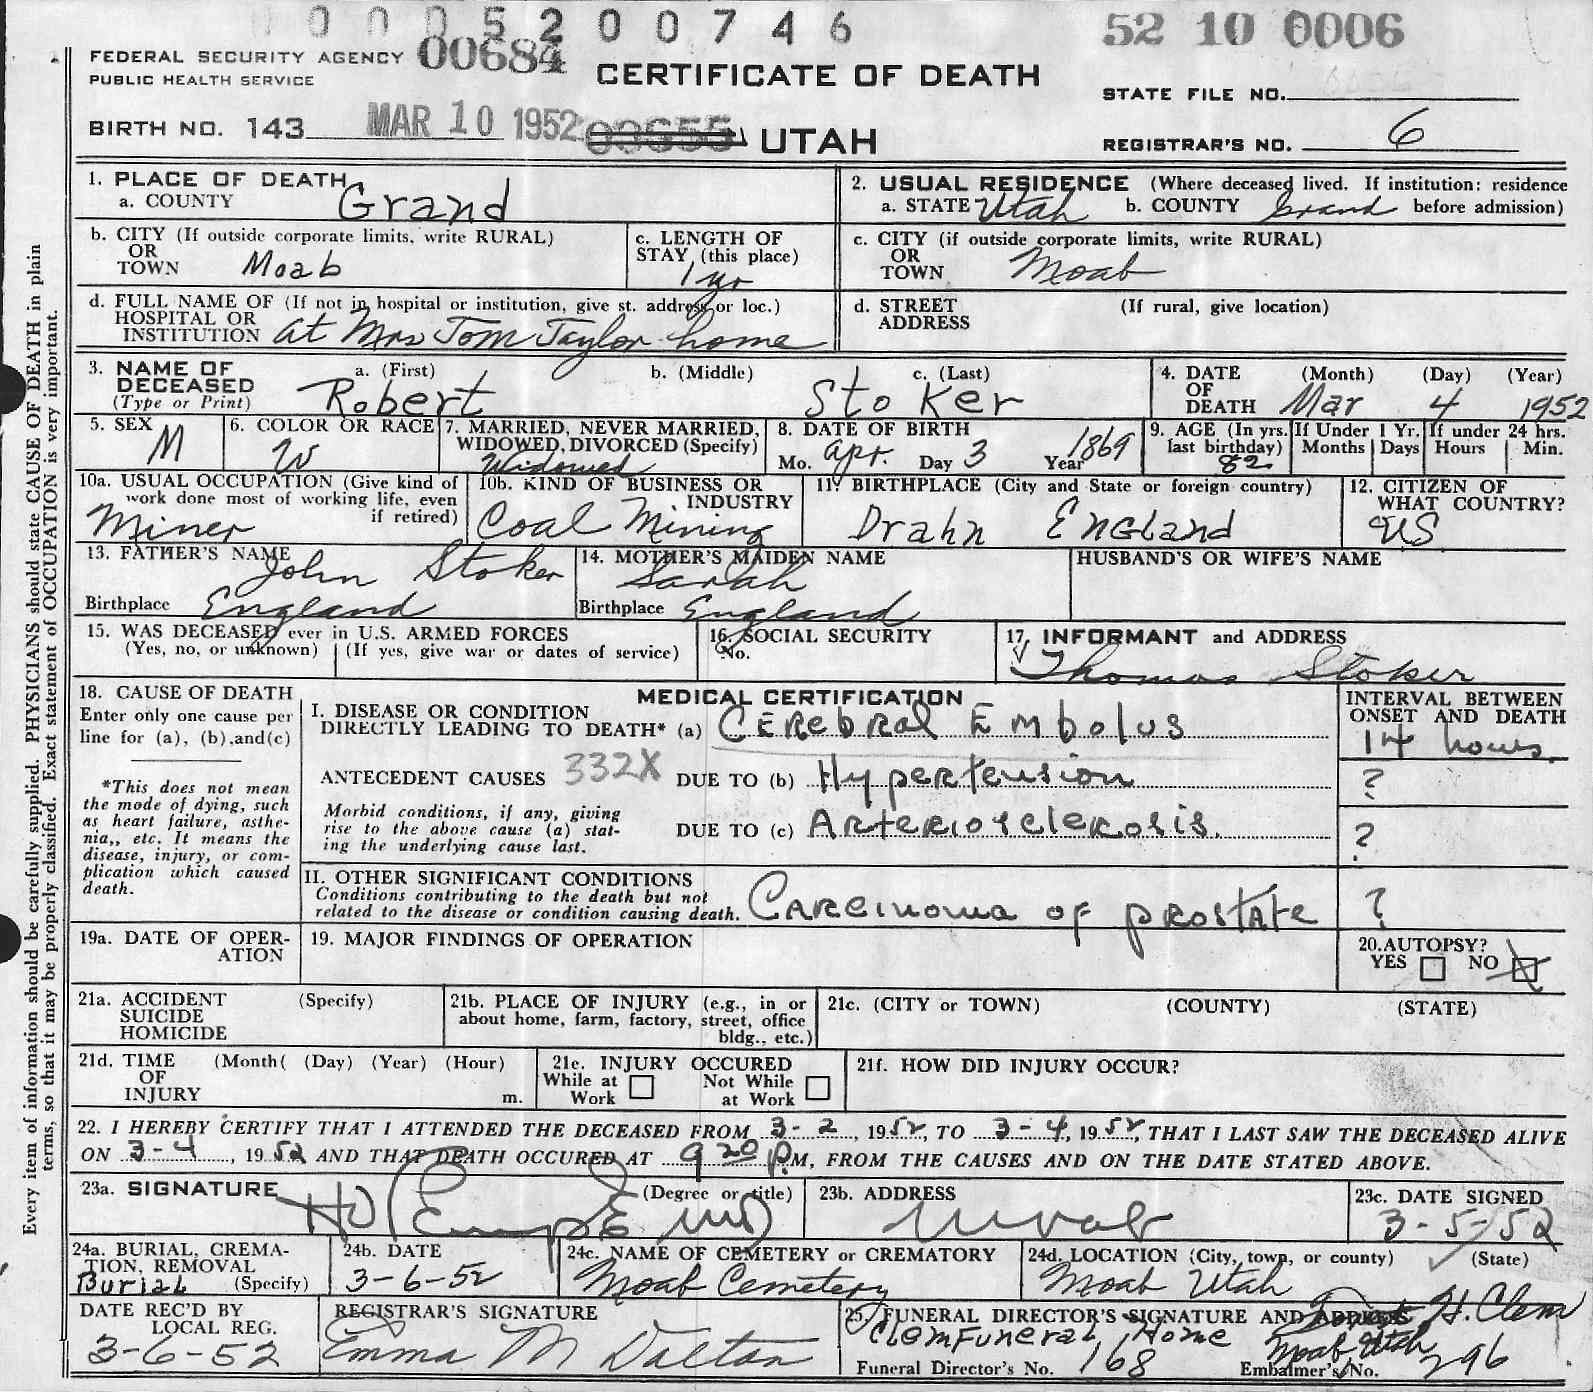 0 0 0 5 2 0 0 7 4 6
52 10 0006
FEDERAL SECURITY AGENCY 00684
PUBLIC HEALTH SERVICE
CERTIFICATE OF DEATH
STATE FILE NO.
BIRTH NO. 143 MAR 10 1952 03655 UTAH
REGISTRAR'S NO. 6
Every item of information should be carefully supplied. PHYSICIANS should state CAUSE OF DEATH in plain
terms, so that it may be properly classified. Exact statement of OCCUPATION is very important.
1. PLACE OF DEATH
a. COUNTY Grand
2. USUAL RESIDENCE (Where deceased lived. If institution: residence
a. STATE Utah b. COUNTY Grand before admission)
b. CITY (If outside corporate limits, write RURAL)
OR
TOWN Moab
c. LENGTH OF
STAY (this place)
1 yr
c. CITY (if outside corporate limits, write RURAL)
OR
TOWN Moab
d. FULL NAME OF (If not in hospital or institution, give st. address or loc.)
HOSPITAL OR
INSTITUTION at Mrs Tom Taylor home
d. STREET (If rural, give location)
ADDRESS
3. NAME OF a. (First) b. (Middle) c. (Last)
DECEASED
(Type or Print) Robert Stoker
4. DATE (Month) (Day) (Year)
OF
DEATH Mar 4 1952
5. SEX
M
6. COLOR OR RACE
W
7. MARRIED, NEVER MARRIED,
WIDOWED, DIVORCED (Specify)
Widowed
8. DATE OF BIRTH
Mo. Apr. Day 3 Year 1869
9. AGE (In yrs.
last birthday)
82
If Under 1 Yr.
Months Days
If under 24 hrs.
Hours Min.
10a. USUAL OCCUPATION (Give kind of
work done most of working life, even
if retired)
Miner
10b. KIND OF BUSINESS OR
INDUSTRY
Coal Mining
11. BIRTHPLACE (City and State or foreign country)
Drahn England
12. CITIZEN OF
WHAT COUNTRY?
US
13. FATHER'S NAME
John Stoker
Birthplace England
14. MOTHER'S MAIDEN NAME
Sarah
Birthplace England
HUSBAND'S OR WIFE'S NAME
15. WAS DECEASED ever in U.S. ARMED FORCES
(Yes, no, or unknown) (If yes, give war or dates of service)
16. SOCIAL SECURITY
No.
17. INFORMANT and ADDRESS
Thomas Stoker
18. CAUSE OF DEATH
Enter only one cause per
line for (a), (b), and (c)
*This does not mean
the mode of dying, such
as heart failure, asthe-
nia,, etc. It means the
disease, injury, or com-
plication which caused
death.
MEDICAL CERTIFICATION
I. DISEASE OR CONDITION
DIRECTLY LEADING TO DEATH* (a) Cerebral Embolus
INTERVAL BETWEEN
ONSET AND DEATH
14 hours
ANTECEDENT CAUSES 332X DUE TO (b) Hypertension ?
Morbid conditions, if any, giving
rise to the above cause (a) stat-
ing the underlying cause last.
DUE TO (c) Arteriosclerosis. ?
II. OTHER SIGNIFICANT CONDITIONS
Conditions contributing to the death but not
related to the disease or condition causing death. Carcinoma of prostate ?
19a. DATE OF OPER-
ATION
19. MAJOR FINDINGS OF OPERATION
20. AUTOPSY?
YES NO X
21a. ACCIDENT (Specify)
SUICIDE
HOMICIDE
21b. PLACE OF INJURY (e.g., in or
about home, farm, factory, street, office
bldg., etc.)
21c. (CITY or TOWN) (COUNTY) (STATE)
21d. TIME (Month( (Day) (Year) (Hour)
OF
INJURY m.
21e. INJURY OCCURED
While at Work Not While at Work
21f. HOW DID INJURY OCCUR?
22. I HEREBY CERTIFY THAT I ATTENDED THE DECEASED FROM 3-2, 1952, TO 3-4, 1952, THAT I LAST SAW THE DECEASED ALIVE
ON 3-4, 1952 AND THAT DEATH OCCURED AT 9 20 P.M, FROM THE CAUSES AND ON THE DATE STATED ABOVE.
23a. SIGNATURE (Degree or title)
MD
23b. ADDRESS
Moab
23c. DATE SIGNED
3-5-52
24a. BURIAL, CREMA-
TION, REMOVAL
Burial (Specify)
24b. DATE
3-6-52
24c. NAME OF CEMETERY or CREMATORY
Moab Cemetery
24d. LOCATION (City, town, or county) (State)
Moab Utah
DATE REC'D BY
LOCAL REG.
3-6-52
REGISTRAR'S SIGNATURE
Emma M Dalton
25. FUNERAL DIRECTOR'S SIGNATURE AND ADDRESS H. Clem
Clem Funeral Home Moab Utah
Funeral Director's No. 168 Embalmer's No. 296